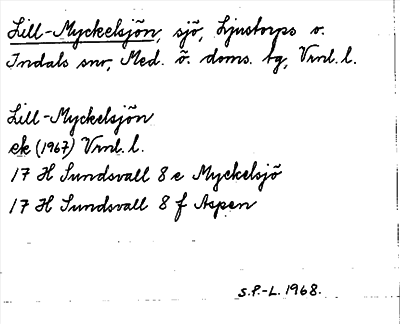 Lill-Myckelsjön, sjö, Ljustorps o.
Indals snr, Med. ö. doms. tg, Vnl. l.
Lill-Myckelsjön
ek (1967) Vnl. l.
17 H Sundsvall 8 e Myckelsjö
17 H Sundsvall 8 f Aspen
S.P.-L. 1968.